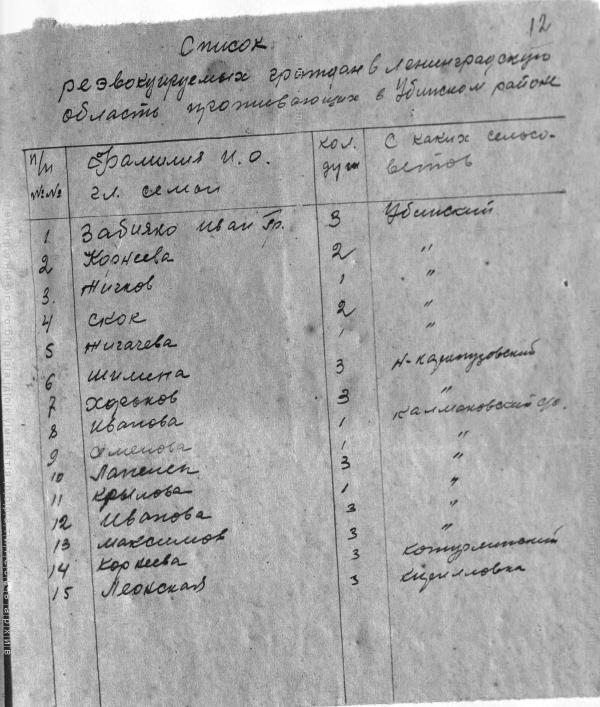 12
Список
реэвокуируемых граждан в Ленинградскую
область проживающих в Убинском районе
п/п №№ Фамилия И. О. гл. семьи кол. душ С каких сельсоветов
1 Забияко Иван Гр. 3 Убинский
2 Корнеева 2 "
3. Жигков 1 "
4 Скок 2 "
5 Жигачева 1
6 Шилина 3 Н-Карапузовский
7 Хорьков 3 "
8 Иванова 1 Калмаковский с/с.
9 1 "
10 3 "
11 Крылова 1 "
12 Иванова 3 "
13 Максимов 3
14 Корнеева 3
15 Леонская 3 Кирилловка